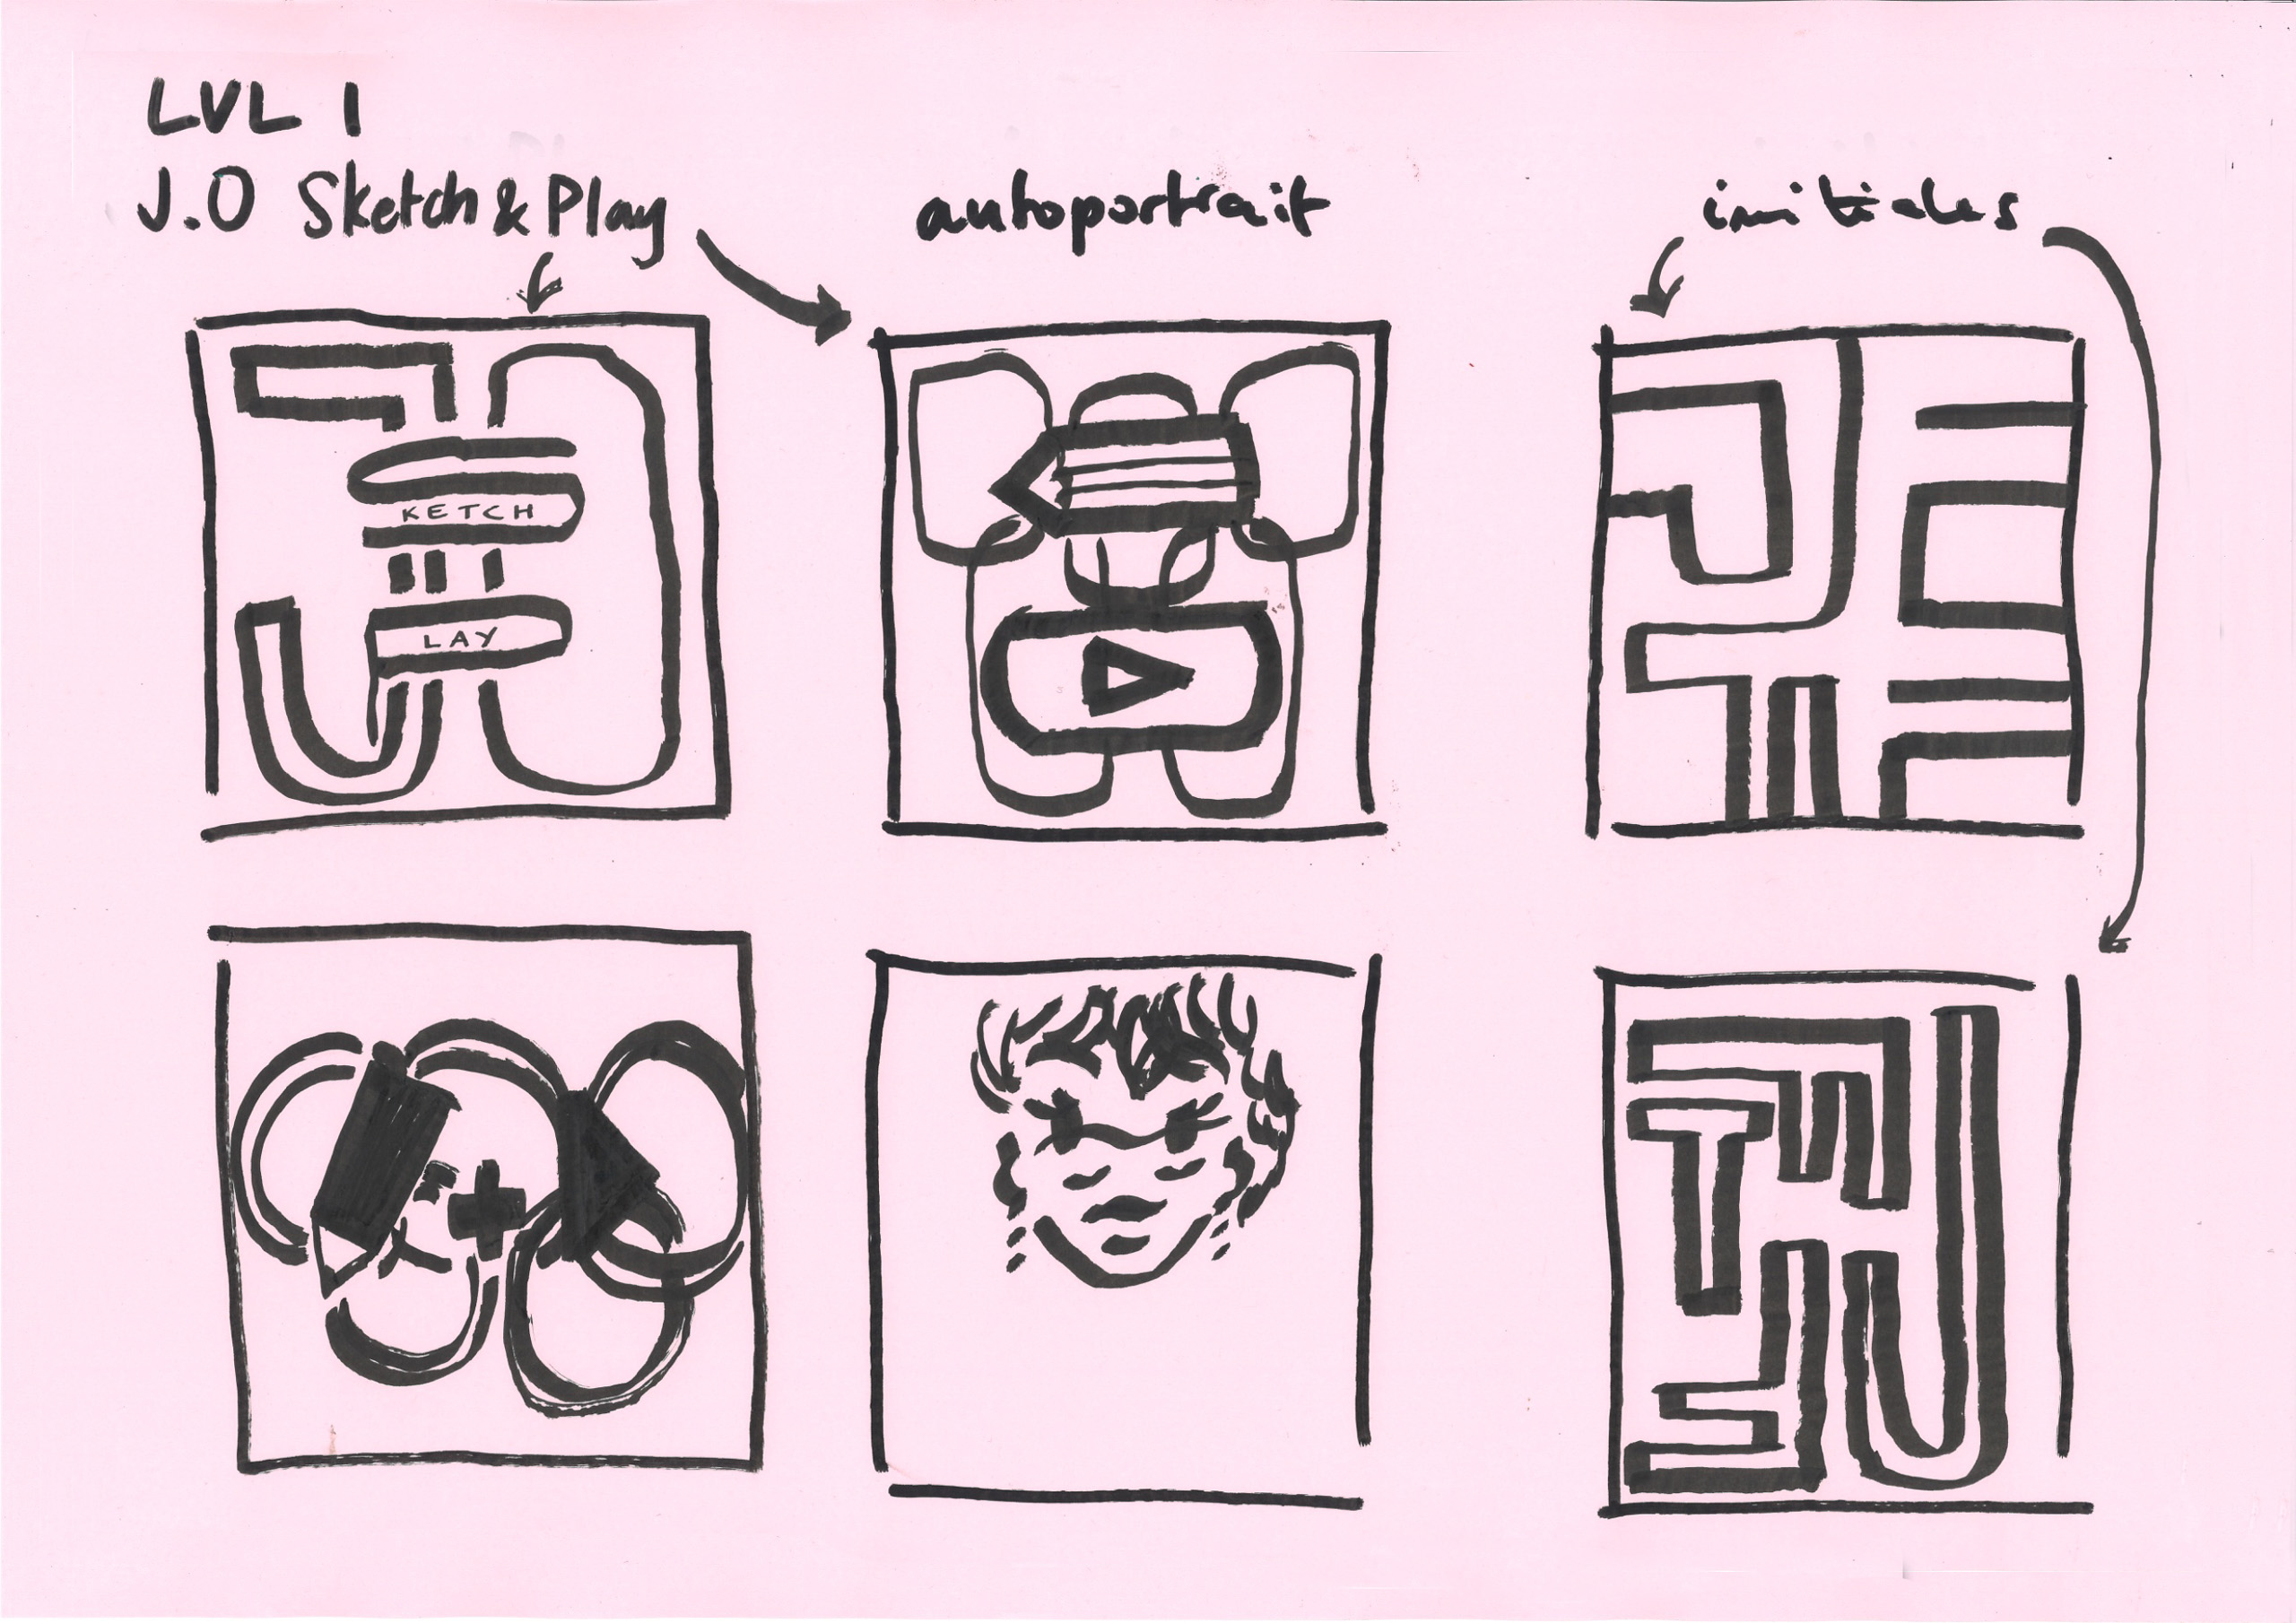 LVL 1
J.O Sketch & Play
autoportrait
initiales
JO
SKETCH
PLAY